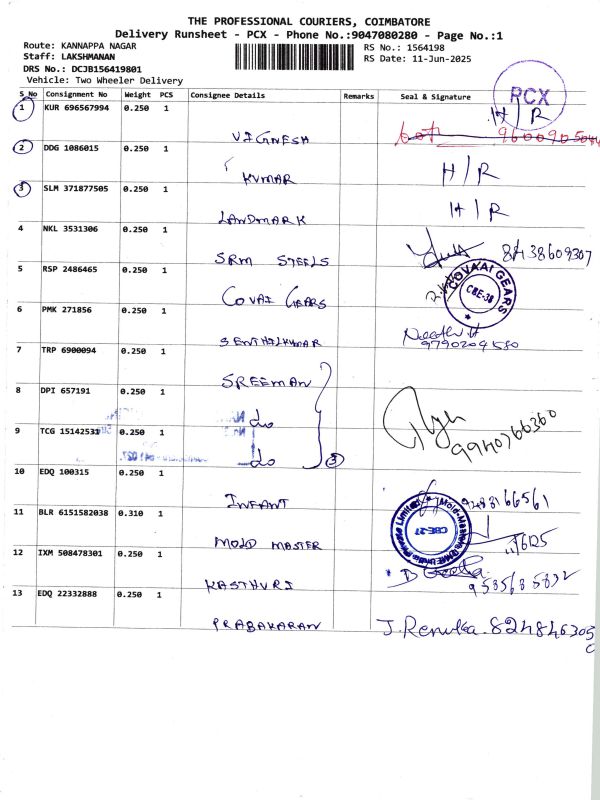 THE PROFESSIONAL COURIERS, COIMBATORE
Delivery Runsheet - PCX - Phone No.:9047080280 - Page No.:1
Route: KANNAPPA NAGAR
Staff: LAKSHMANAN
DRS No.: DCJB156419801
Vehicle: Two Wheeler Delivery
RS No.: 1564198
RS Date: 11-Jun-2025
PCX
S No Consignment No Weight PCS Consignee Details Remarks Seal & Signature
1 KUR 696567994 0.250 1 VIGNESH H/R
2 DDG 1086015 0.250 1 KUMAR H/R
3 SLM 371877505 0.250 1 LANDMARK H/R
4 NKL 3531306 0.250 1 SRM STEELS 8438609307
5 RSP 2486465 0.250 1 COVAI GEARS
COVAAI GEARS
CBE-38
6 PMK 271856 0.250 1 SENTHILKUMAR 9790209580
7 TRP 6900094 0.250 1 SREEMAN
8 DPI 657191 0.250 1 do
9 TCG 15142531 0.250 1 do 3 9940766360
10 EDQ 100315 0.250 1 INFANT 9283166561
11 BLR 6151582038 0.310 1 MOLD MASTER 11/6/25
CBE-27
12 IXM 508478301 0.250 1 KASTHURI 9585685832
13 EDQ 22332888 0.250 1 PRABAKARAN J. Renuka. 8248463050